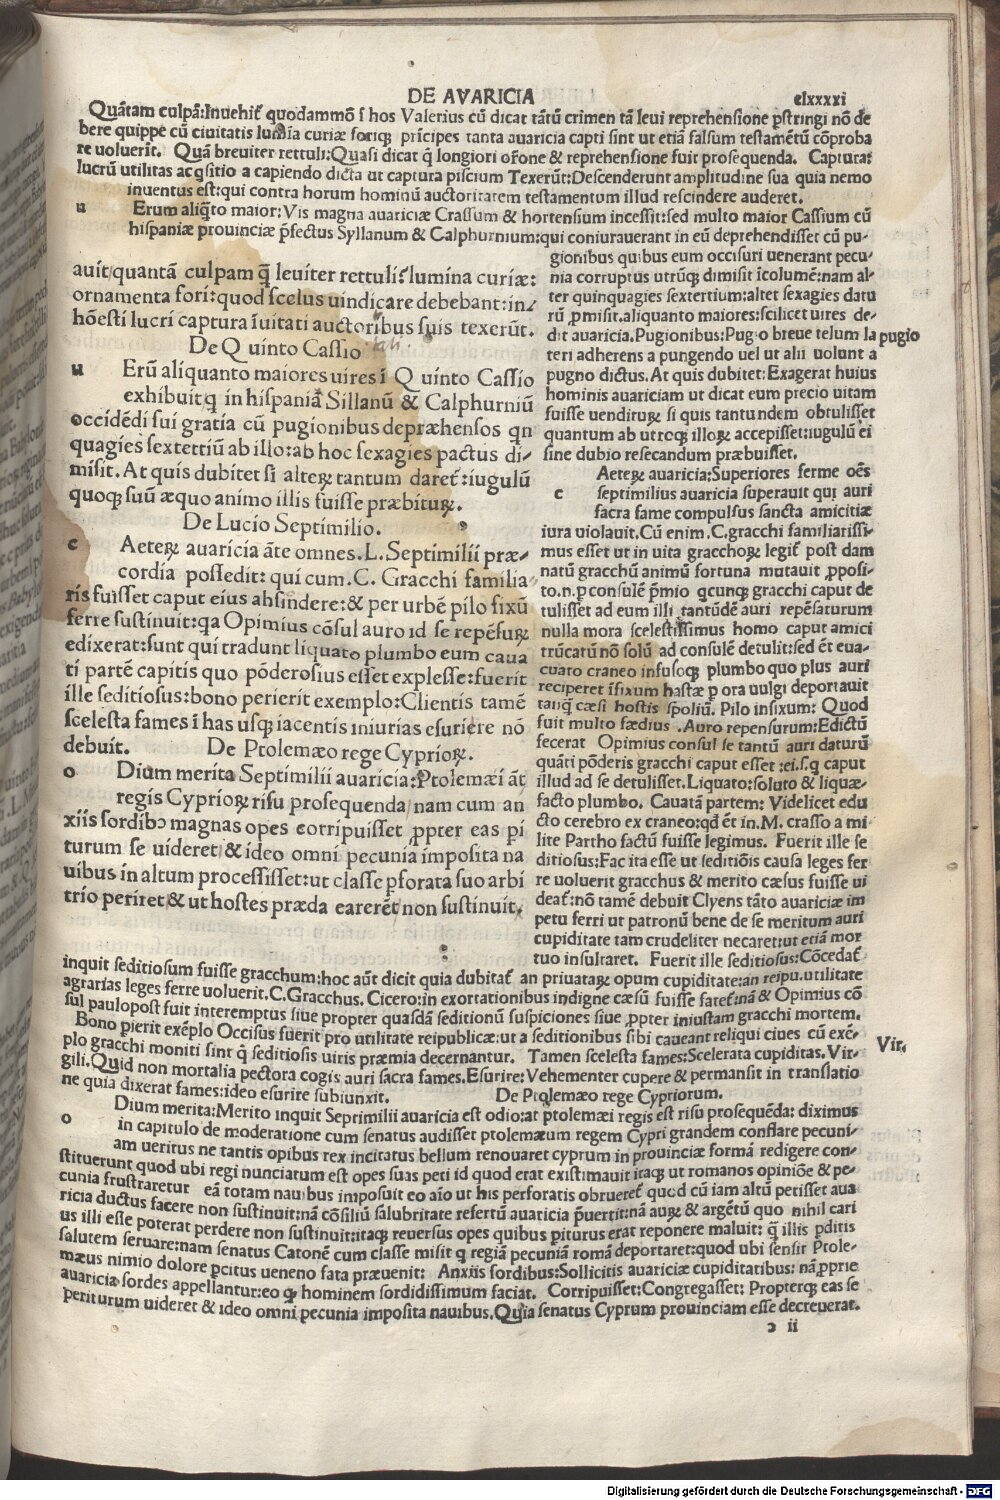 DE AVARICIA
clxxxxi
Quātam culpā:Inuehit᷒ quodammō ī hos Valerius cū dicat tātū crimen tā leui reprehensione p̄stringi nō de
bere quippe cū ciuitatis lumīa curiæ foriqꝫ prīcipes tanta auaricia capti sint ut etiā falsum testamētū cōproba
re uoluerit. Quā breuiter rettuli:Quasi dicat q̄ longiori orōne & reprehensione fuit prosequenda. Captura:
lucrū utilitas acq̄sitio a capiendo dicta ut captura piscium Texerūt:Descenderunt amplitudine sua quia nemo
inuentus est:qui contra horum hominū auctoritatem testamentum illud rescindere auderet.
u Erum aliq̄to maior:Vis magna auariciæ Crassum & hortensium incessit:sed multo maior Cassium cū
hispaniæ prouinciæ p̄fectus Syllanum & Calphurnium:qui coniurauerant in eū deprehendisset cū pu-
auit/quantā culpam q̄ leuiter rettuli?lumina curiæ:
ornamenta fori:quod scelus uindicare debebant:in/
hōesti lucri captura īuitati auctoribus suis texerūt.
De Quinto Cassio
u Erū aliquanto maiores uires ī Quinto Cassio
exhibuit:q in hispaniā Sillanū & Calphurniū
occidēdi sui gratia cū pugionibus depræhensos qn
quagies sextertiū ab illo:ab hoc sexagies pactus di/
misit. At quis dubitet si alteꝝ tantum daret᷒:iugulū
quoqꝫ suū æquo animo illis fuisse præbituꝝ.
De Lucio Septimilio.
c Aeteꝝ auaricia āte omnes.L.Septimilii præ/
cordia possedit: qui cum.C. Gracchi familia
ris fuisset caput eius abscindere:& per urbē pilo fixū
ferre sustinuit:qa Opimius cōsul auro id se repēsuꝝ
edixerat:sunt qui tradunt liquato plumbo eum caua
ti partē capitis quo pōderosius esset explesse:fuerit
ille seditiosus:bono perierit exemplo:Clientis tamē
scelesta fames ī has usqꝫ iacentis iniurias esuriere nō
debuit. De Ptolemæo rege Cyprioꝝ.
o Dium merita Septimilii auaricia:Ptolemæi āt
regis Cyprioꝝ risu prosequenda/nam cum an
xiis sordibꝰ magnas opes corripuisset ꝓpter eas pi
turum se uideret/& ideo omni pecunia imposita na
uibus in altum processisset:ut classe ꝑforata suo arbi
trio periret/& ut hostes præda carerēt non sustinuit.
gionibus quibus eum occisuri uenerant pecu-
nia corruptus utrūqꝫ dimisit īcolumē:nam al-
ter quinquagies sextertium:altet sexagies datu
rū ꝓmisit.aliquanto maiores:scilicet uires de-
dit auaricia.Pugionibus:Pugio breue telum la
teri adherens a pungendo uel ut alii uolunt a
pugno dictus.At quis dubitet:Exagerat huius
hominis auariciam ut dicat eum precio uitam
fuisse uendituꝝ si quis tantundem obtulisset
quantum ab utroqꝫ illoꝝ accepisset:iugulū ei
sine dubio resecandum præbuisset.
c Aeteꝝ auaricia:Superiores ferme oēs
septimilius auaricia superauit qui auri
sacra fame compulsus sancta amicitiæ
iura uiolauit.Cū enim.C.gracchi familiarissi-
mus esset ut in uita gracchoꝝ legit᷒ post dam
natū gracchū animū fortuna mutauit ꝓposi-
to.n.p consulē p̄mio qcunqꝫ gracchi caput de
tulisset ad eum illi tantūdē auri repēsaturum
nulla mora scelestissimus homo caput amici
trūcatū nō solū ad consulē detulit:sed ēt eua-
cuato craneo infusoqꝫ plumbo quo plus auri
reciperet īfixum hastæ p ora uulgi deportauit
tanq̄ cæsi hostis spoliū. Pilo insixum: Quod
fuit multo fædius .Auro repensurum:Edictū
fecerat Opimius consul se tantū auri daturū
quāti pōderis gracchi caput esset :ei.s.q caput
illud ad se detulisset.Liquato:soluto & liquæ-
facto plumbo. Cauatā partem: Videlicet edu
cto cerebro ex craneo:qd ēt in.M. crasso a mi
lite Partho factū fuisse legimus. Fuerit ille se
ditiosus:Fac ita esse ut seditiōis causa leges fer
re uoluerit gracchus & merito cæsus fuisse ui
deat᷒:nō tamē debuit Clyens tāto auariciæ im
petu ferri ut patronū bene de se meritum auri
cupiditate tam crudeliter necaret:ut etiā mor
tuo insultaret. Fuerit ille seditiosus:Cōcedat᷒
pugio
inquit seditiosum fuisse gracchum:hoc aūt dicit quia dubitat᷒ an priuataꝝ opum cupiditate:an reipu.utilitate
agrarias leges ferre uoluerit.C.Gracchus. Cicero:in exortationibus indigne cæsū fuisse fatet᷒:nā & Opimius cō
sul paulopost fuit interemptus siue propter quasdā seditionū suspiciones siue ꝓpter iniustam gracchi mortem.
Bono pierit exēplo Occisus fuerit pro utilitate reipublicæ:ut a seditionibus sibi caueant reliqui ciues cū exē-
plo gracchi moniti sint q̄ seditiosis uiris præmia decernantur. Tamen scelesta fames:Scelerata cupiditas.Vir-
gili.Quid non mortalia pectora cogis auri sacra fames.Esurire:Vehementer cupere & permansit in translatio
ne quia dixerat fames:ideo esurire subiunxit. De Ptolemæo rege Cypriorum.
Vir.
o Dium merita:Merito inquit Septimilii auaricia est odio:at ptolemæi regis est risu prosequēda: diximus
in capitulo de moderatione cum senatus audisset ptolemæum regem Cypri grandem conflare pecuni-
am ueritus ne tantis opibus rex incitatus bellum renouaret cyprum in prouinciæ formā redigere con-
stituerunt quod ubi regi nunciatum est opes suas peti id quod erat existimauit itaqꝫ ut romanos opiniōe & pe-
cunia frustraretur eā totam nauibus imposuit eo aīo ut his perforatis obrueret᷒ quod cū iam altū petisset aua
ricia ductus facere non sustinuit:nā cōsiliū salubritate refertū auaricia p̄uertit:nā auꝝ & argētū quo nihil cari
us illi esse poterat perdere non sustinuit:itaqꝫ reuersus opes quibus piturus erat reponere maluit: q̄ illis ꝑditis
salutem seruare:nam senatus Catonē cum classe misit q regiā pecuniā romā deportaret:quod ubi sensit Ptole-
mæus nimio dolore ꝑcitus ueneno fata præuenit: Anxiis sordibus:Sollicitis auariciæ cupiditatibus: nā ꝓprie
auariciæ sordes appellantur:eo qꝫ hominem sordidissimum faciat. Corripuisset:Congregasset: Propterqꝫ eas se
periturum uideret & ideo omni pecunia imposita nauibus.Quia senatus Cyprum prouinciam esse decreuerat.
ɔ ii
Digitalisierung gefördert durch die Deutsche Forschungsgemeinschaft - DFG